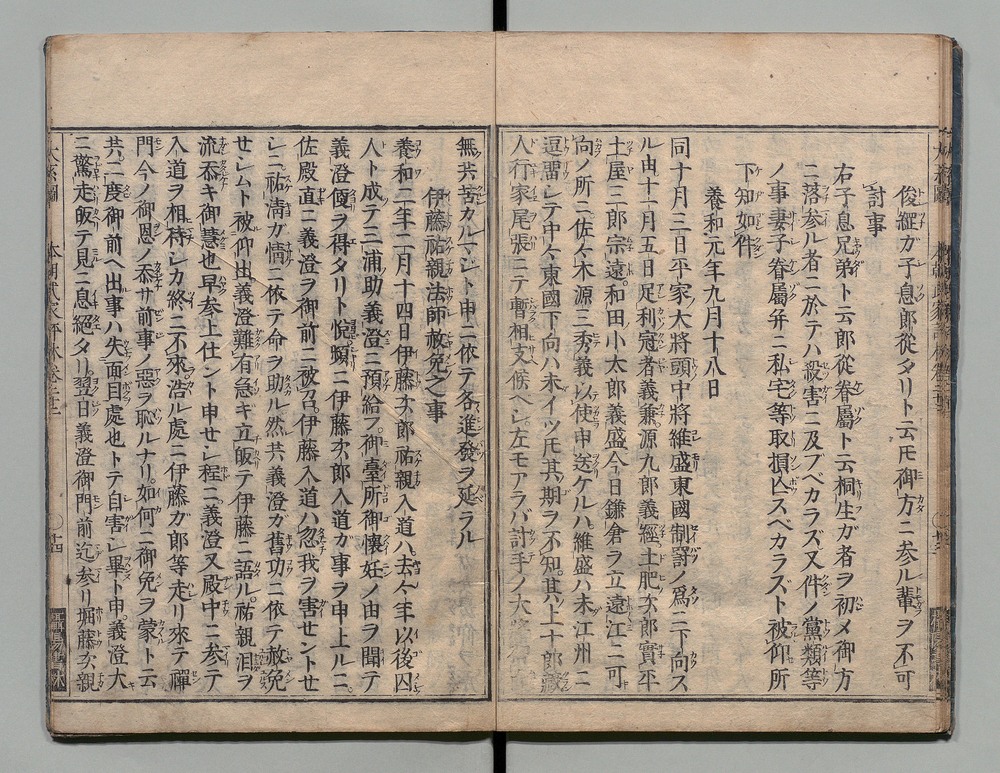 俊綱ガ子息郎從タリト云モ御方ニ参ル輩ヲ不可
討事
右子息兄弟ト云郎從眷屬ト云桐生ガ者ヲ初メ御方
ニ落参ル者ニ於テハ殺害ニ及ブベカラズ又件ノ黨類等
ノ事妻子眷屬并ニ私宅等取損亡スベカラスト被仰所
下知如件
養和元年九月十八日
同十月三日平家ノ大將頭中將維盛東國制罸ノ爲ニ下向ス
ル由十一月五日足利冠者義兼源九郎義經土肥次郎實平
土屋三郎宗遠和田小太郎義盛今日鎌倉ヲ立遠江ニ可
向ノ所ニ佐々木源三秀義以使申送ケルハ維盛ハ未江州ニ
逗畱シテ中々東國下向ハ未イツ圧其期ヲ不知其上十郎藏
人行家尾張ニテ暫相支候ヘシ左モアラバ討手ノ大
無共苦カルマシト申ニ依テ各進發ヲ延ラル
伊藤祐親法師赦免之事
養和二年二月十四日伊藤次郎祐親入道ハ去々年以後囚
人ト成テ三浦助義澄ニ預給フ御臺所御懷妊ノ由ヲ聞テ
義澄便ヲ得タリト悅頻ニ伊藤次郎入道ガ事ヲ申上ルニ
佐殿直ニ義澄ヲ御前ニ被召伊藤入道ハ忽我ヲ害セントせ
シニ祐淸ガ情ニ依テ命ヲ助ル然共義澄ガ舊功ニ依テ赦免
せシムト被仰出義澄難有急キ立皈テ伊藤ニ語ル祐親泪ヲ
流忝キ御慧也早参上仕ント申せシ程ニ義澄又殿中ニ参テ
入道ヲ相待シカ終ニ不來浩ル處ニ伊藤ガ郎等走リ來テ禪
門今ノ御恩ノ忝サ前事ノ惡ヲ恥ルナリ如何ニ御免ヲ蒙ト云
共二度御前ヘ出事ハ失面目處也トテ自害シ畢ト申義澄大
ニ驚走皈テ見ニ息絕タリ翌日義澄御門前迄参リ堀藤次親